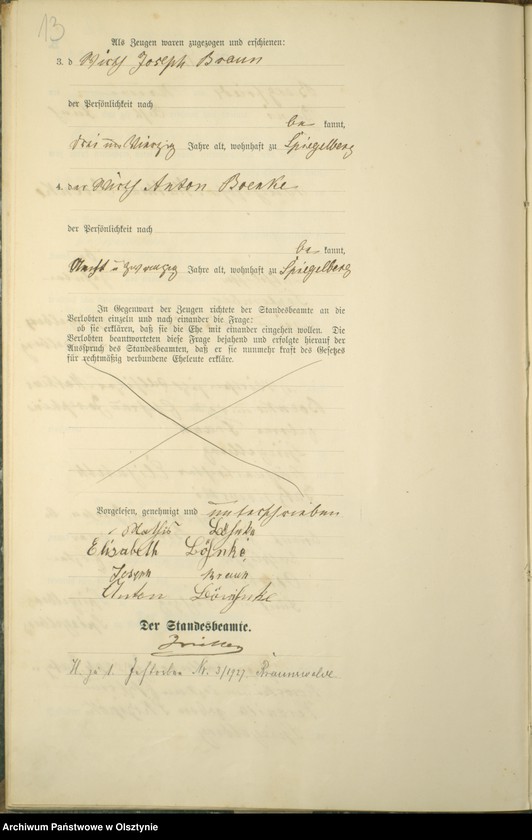 13
Als Zeugen waren zugezogen und erschienen:
3. d Wirth Joseph Braun
der Persönlichkeit nach
be kannt,
drei und Vierzig Jahre alt, wohnhaft zu Spiegelberg
4. der Wirth Anton Boenke
der Persönlichkeit nach
be kannt,
Acht u zwanzig Jahre alt, wohnhaft zu Spiegelberg
In Gegenwart der Zeugen richtete der Standesbeamte an die
Verlobten einzeln und nach einander die Frage:
ob sie erklären, daß sie die Ehe mit einander eingehen wollen. Die
Verlobten beantworteten diese Frage bejahend und erfolgte hierauf der
Ausspruch des Standesbeamten, daß er sie nunmehr kraft des Gesetzes
für rechtmäßig verbundene Eheleute erkläre.
Vorgelesen, genehmigt und unterschrieben
Mathis
Elisabeth Böhnke
Joseph Braun
Anton
Der Standesbeamte.
Nr. 3/1927, Braunswalde
Archiwum Państwowe w Olsztynie